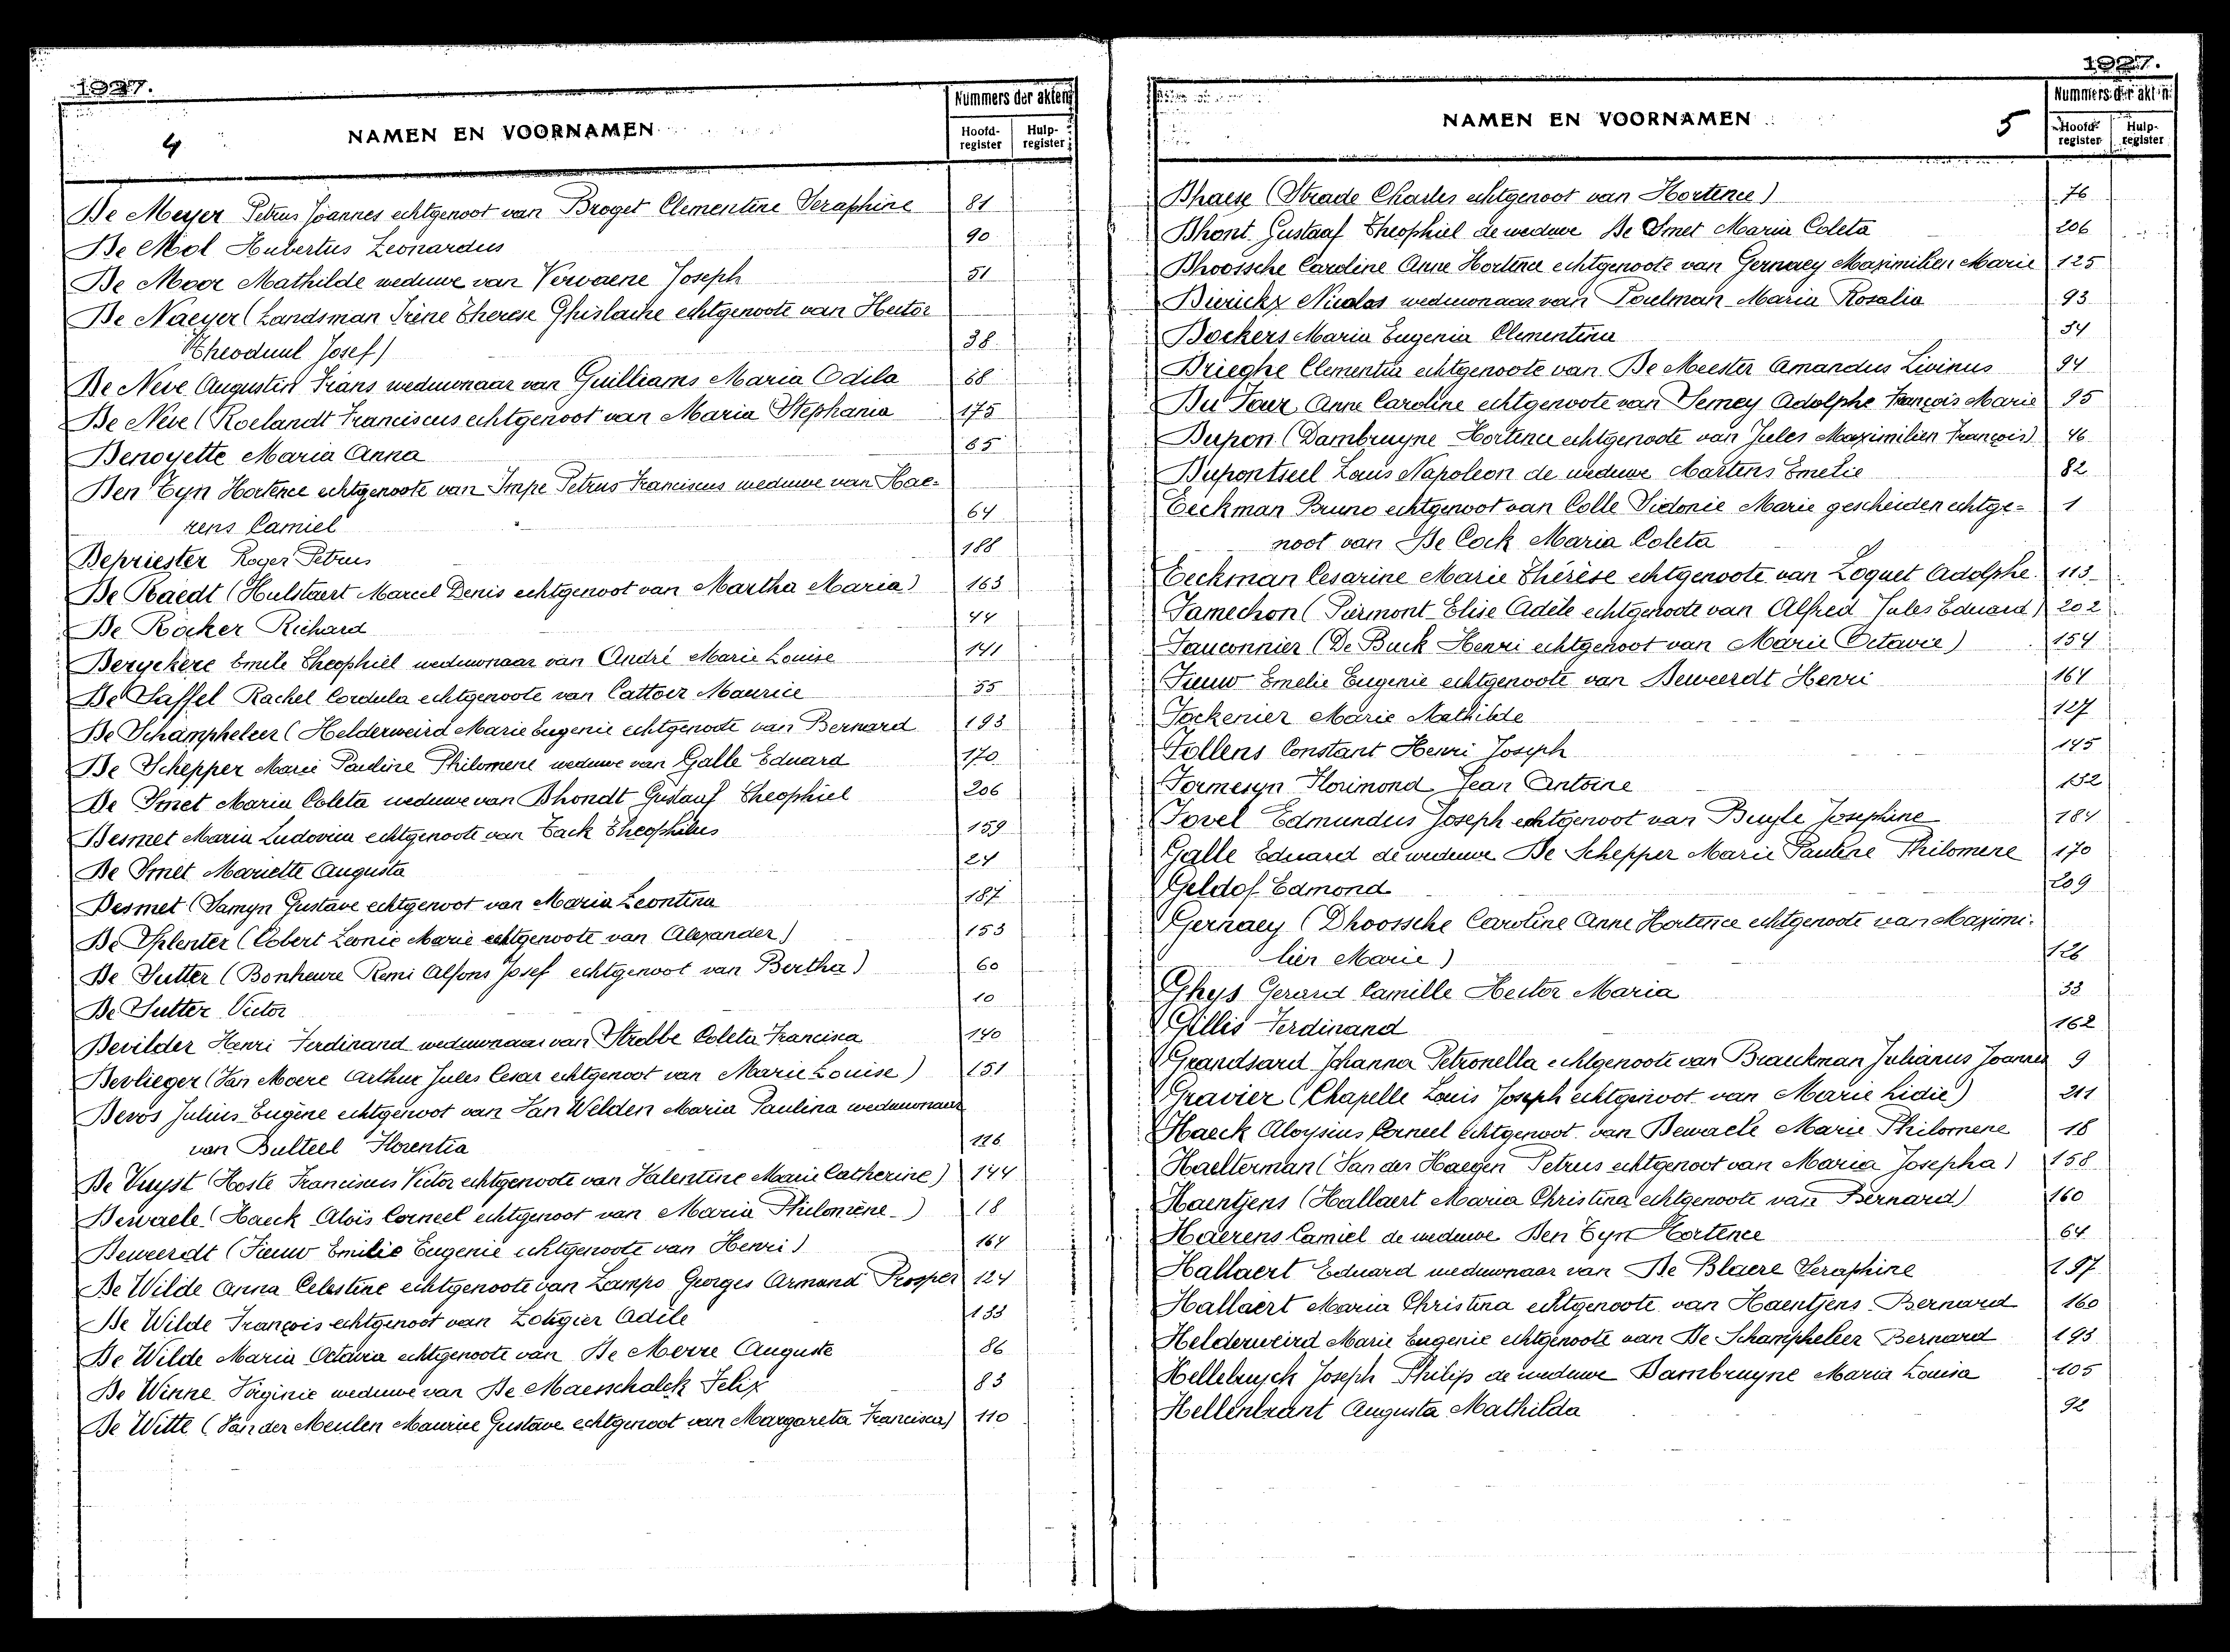 1927.
4
NAMEN EN VOORNAMEN
Nummers der akten
Hoofd-register
Hulp-register
De Meyer Petrus Joannes echtgenoot van Broget Clementine Seraphine 81
De Mol Hubertus Leonardus 90
De Moor Mathilde weduwe van Vervaene Joseph 51
De Naeyer (Landsman Irène Therese Ghislaine echtgenoote van Hector
Theoduul Josef) 38
De Neve Augustin Frans weduwnaar van Guilliams Maria Odila 68
De Neve (Roelandt Franciscus echtgenoot van Maria Stephania 175
Denoyette Maria Anna 65
Den Tyn Hortence echtgenoote van Impe Petrus Franciscus weduwe van Hae-
rens Camiel 64
Depriester Roger Petrus 188
De Raedt (Hulstaert Marcel Denis echtgenoot van Martha Maria) 163
De Rocker Richard 44
Deryckere Emile Theophiel weduwnaar van André Marie Louise 141
De Saffel Rachel Cordula echtgenoote van Cattoir Maurice 55
De Schampheleer (Helderweird Marie Eugenie echtgenoote van Bernard 193
De Schepper Marie Pauline Philomene weduwe van Galle Eduard 170
De Smet Maria Coleta weduwe van Dhondt Gustaaf Theophiel 206
Desmet Maria Ludovica echtgenoote van Tack Theophilus 159
De Smet Mariette Augusta 24
Desmet (Samyn Gustave echtgenoot van Maria Leontina 187
De Splenter (Cobert Leonie Marie echtgenoote van Alexander) 153
De Sutter (Bonheure Remi Alfons Josef echtgenoot van Bertha) 60
De Sutter Victor 10
Devilder Henri Ferdinand weduwnaar van Strobbe Coleta Francisca 140
Devlieger (Van Moere Arthur Jules Cesar echtgenoot van Marie Louise) 151
Devos Julius Eugène echtgenoot van Van Welden Maria Paulina weduwnaar
van Bulteel Florentia 116
De Vuyst (Hoste Franciscus Victor echtgenoote van Valentine Marie Catherine) 144
Dewaele (Haeck Aloïs Corneel echtgenoot van Maria Philomène) 18
Deweerdt (Fieuw Emilie Eugenie echtgenoote van Henri) 164
De Wilde Anna Celestine echtgenoote van Lampo Georges Armand Prosper 124
De Wilde François echtgenoot van Lotigier Adile 133
De Wilde Maria Octavia echtgenoote van De Merre Auguste 86
De Winne Virginie weduwe van De Maesschalck Felix 83
De Witte (Van der Meulen Maurice Gustave echtgenoot van Margareta Francisca) 110
1927.
NAMEN EN VOORNAMEN
5
Nummers der akten
Hoofd-register
Hulp-register
Dhaese (Strade Charles echtgenoot van Hortence) 76
Dhont Gustaaf Theophiel de weduwe De Smet Maria Coleta 206
Dhoossche Caroline Anne Hortence echtgenoote van Gernaey Maximilien Marie 125
Dierickx Nicolas weduwnaar van Poelman Maria Rosalia 93
Dockers Maria Eugenia Clementina 34
Drieghe Clementia echtgenoote van De Meester Amandus Livinus 94
Du Four Anne Caroline echtgenoote van Semey Adolphe François Marie 95
Dupon (Dambruyne Hortence echtgenoote van Jules Maximilien François) 46
Dupontseel Louis Napoleon de weduwe Martens Emelie 82
Eeckman Bruno echtgenoot van Colle Sidonie Marie gescheiden echtge- 1
noot van De Cock Maria Coleta
Eeckman Cesarine Marie Thérèse echtgenoote van Loquet Adolphe 113
Famechon (Piermont Elise Adèle echtgenoote van Alfred Jules Eduard) 202
Fauconnier (De Buck Henri echtgenoot van Marie Octavie) 154
Fieuw Emelie Eugenie echtgenoote van Deweerdt Henri 164
Fockenier Marie Mathilde 127
Follens Constant Henri Joseph 145
Formesyn Florimond Jean Antoine 132
Fovel Edmundus Joseph echtgenoot van Buyle Josephine 184
Galle Eduard de weduwe De Schepper Marie Pauline Philomene 170
Geldof Edmond 209
Gernaey (Dhoossche Caroline Anne Hortence echtgenoote van Maximi-
lien Marie) 126
Ghys Gerard Camille Hector Maria 33
Gillis Ferdinand 162
Grandsard Johanna Petronella echtgenoote van Braeckman Julianus Joannes 9
Gravier (Chapelle Louis Joseph echtgenoot van Marie Lidie) 211
Haeck Aloysius Corneel echtgenoot van Dewaele Marie Philomene 18
Haelterman (Van der Haegen Petrus echtgenoot van Maria Josepha) 158
Haentjens (Hallaert Maria Christina echtgenoote van Bernard) 160
Haerens Camiel de weduwe Den Tyn Hortence 64
Hallaert Eduard weduwnaar van De Blaere Seraphine 197
Hallaert Maria Christina echtgenoote van Haentjens Bernard 160
Helderweird Marie Eugenie echtgenoote van De Schampheleer Bernard 193
Hellebuyck Joseph Philip de weduwe Dambruyne Maria Louisa 105
Hellenbrant Augusta Mathilda 92